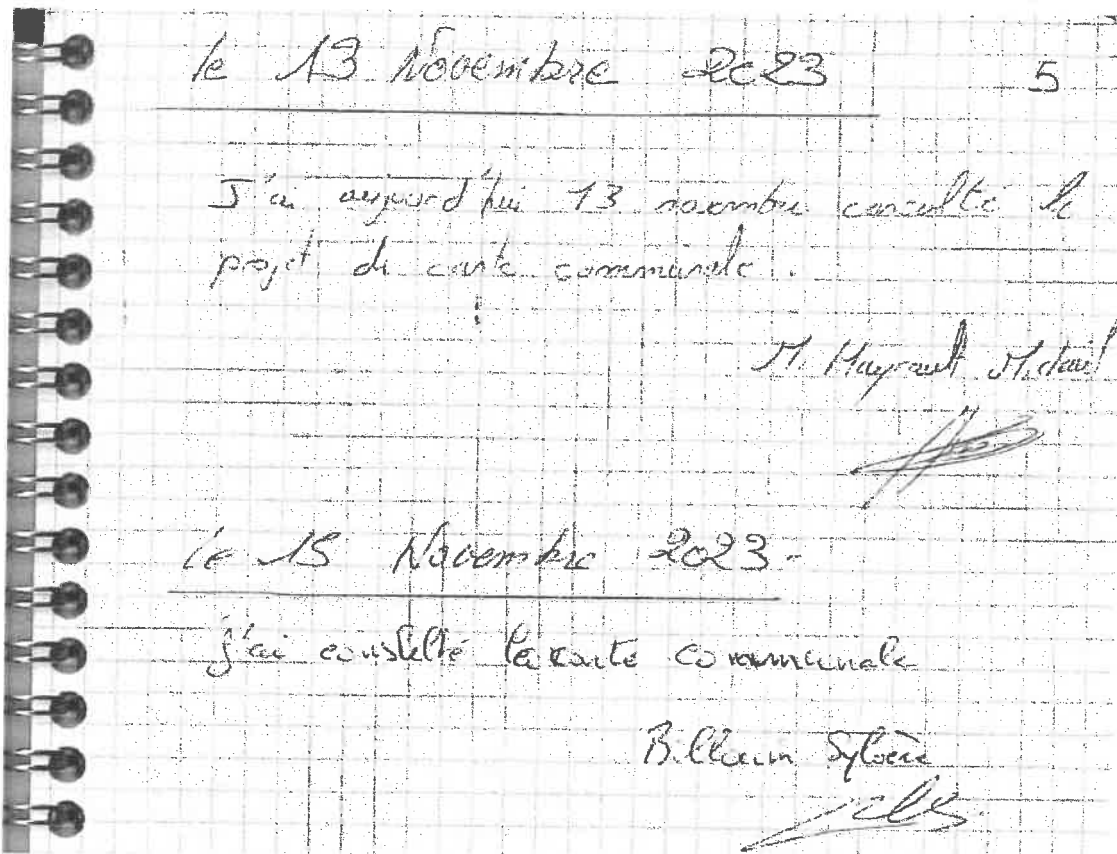 le 13 Novembre 2023 5
J'ai aujourd'hui 13 novembre consulté le
projet de carte communale.
M. Mayrault
le 15 Novembre 2023-
j'ai consulté la carte communale